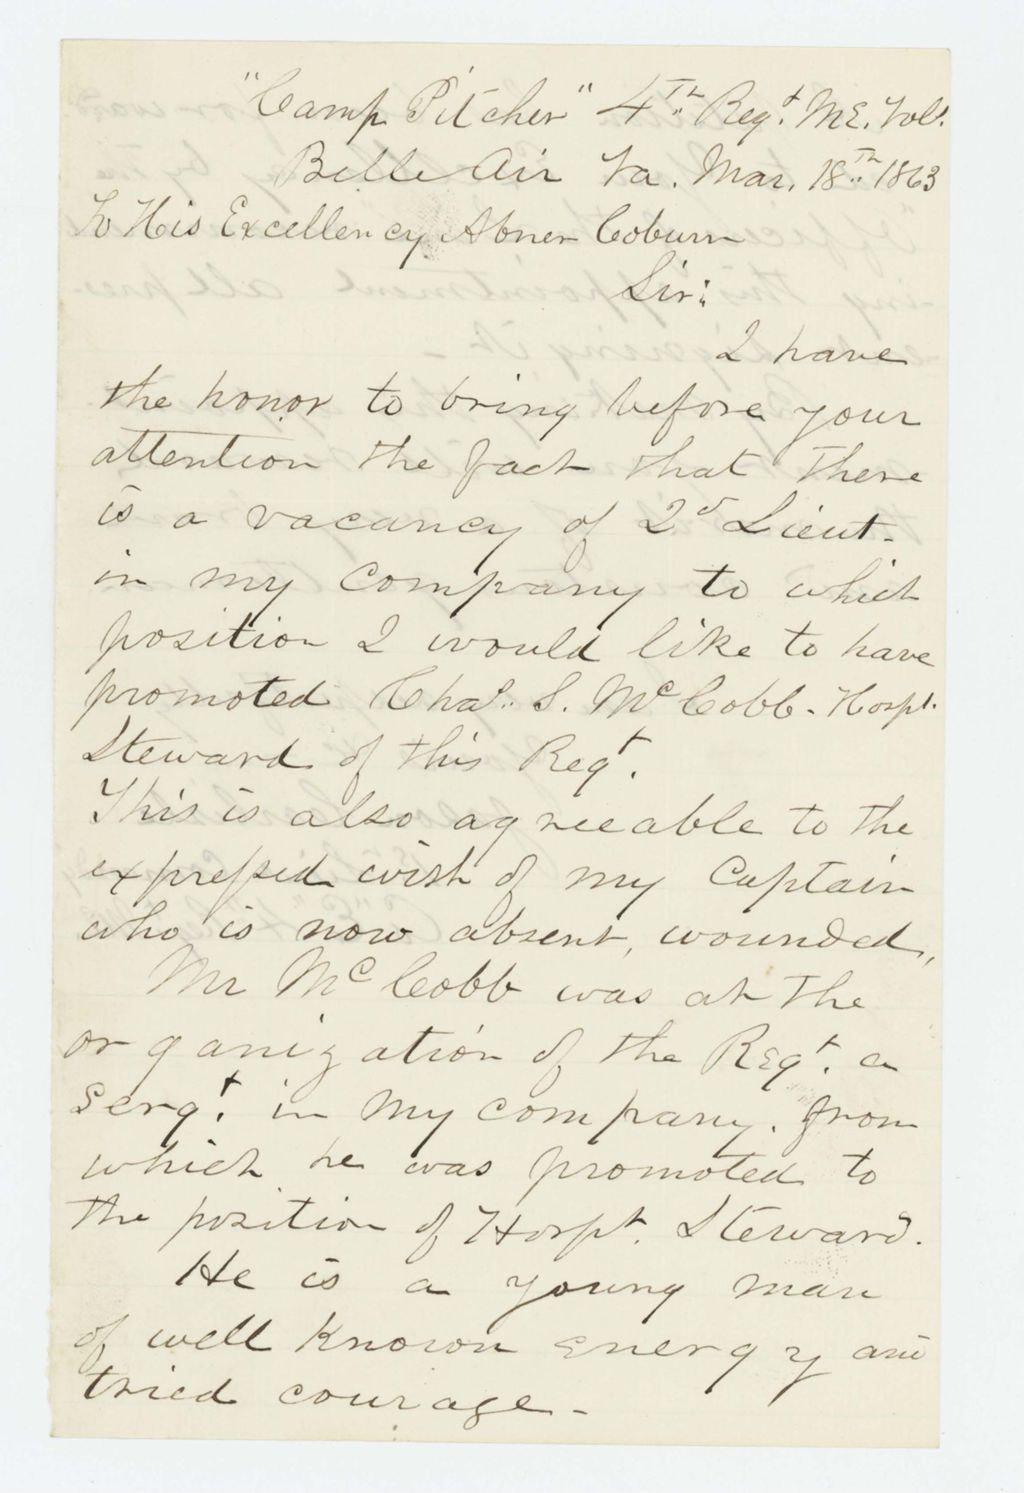 "Camp Pitcher" 4th Regt. ME. Vols.
Belle Air Va. Mar. 18th 1863
To His Excellency Abner Coburn
Sir:
I have
the honor to bring before your
attention the fact that there
is a vacancy of 2d Lieut.
in my company to which
position I would like to have
promoted Chas. S. McCobb - Hospt.
Steward of this Regt.
This is also agreeable to the
expressed wish of my Captain
who is now absent, wounded,
Mr McCobb was at the
organization of the Regt. a
Sergt. in my company. from
which he was promoted to
the position of Hospt. Steward.
He is a young man
of well known energy and
tried courage -